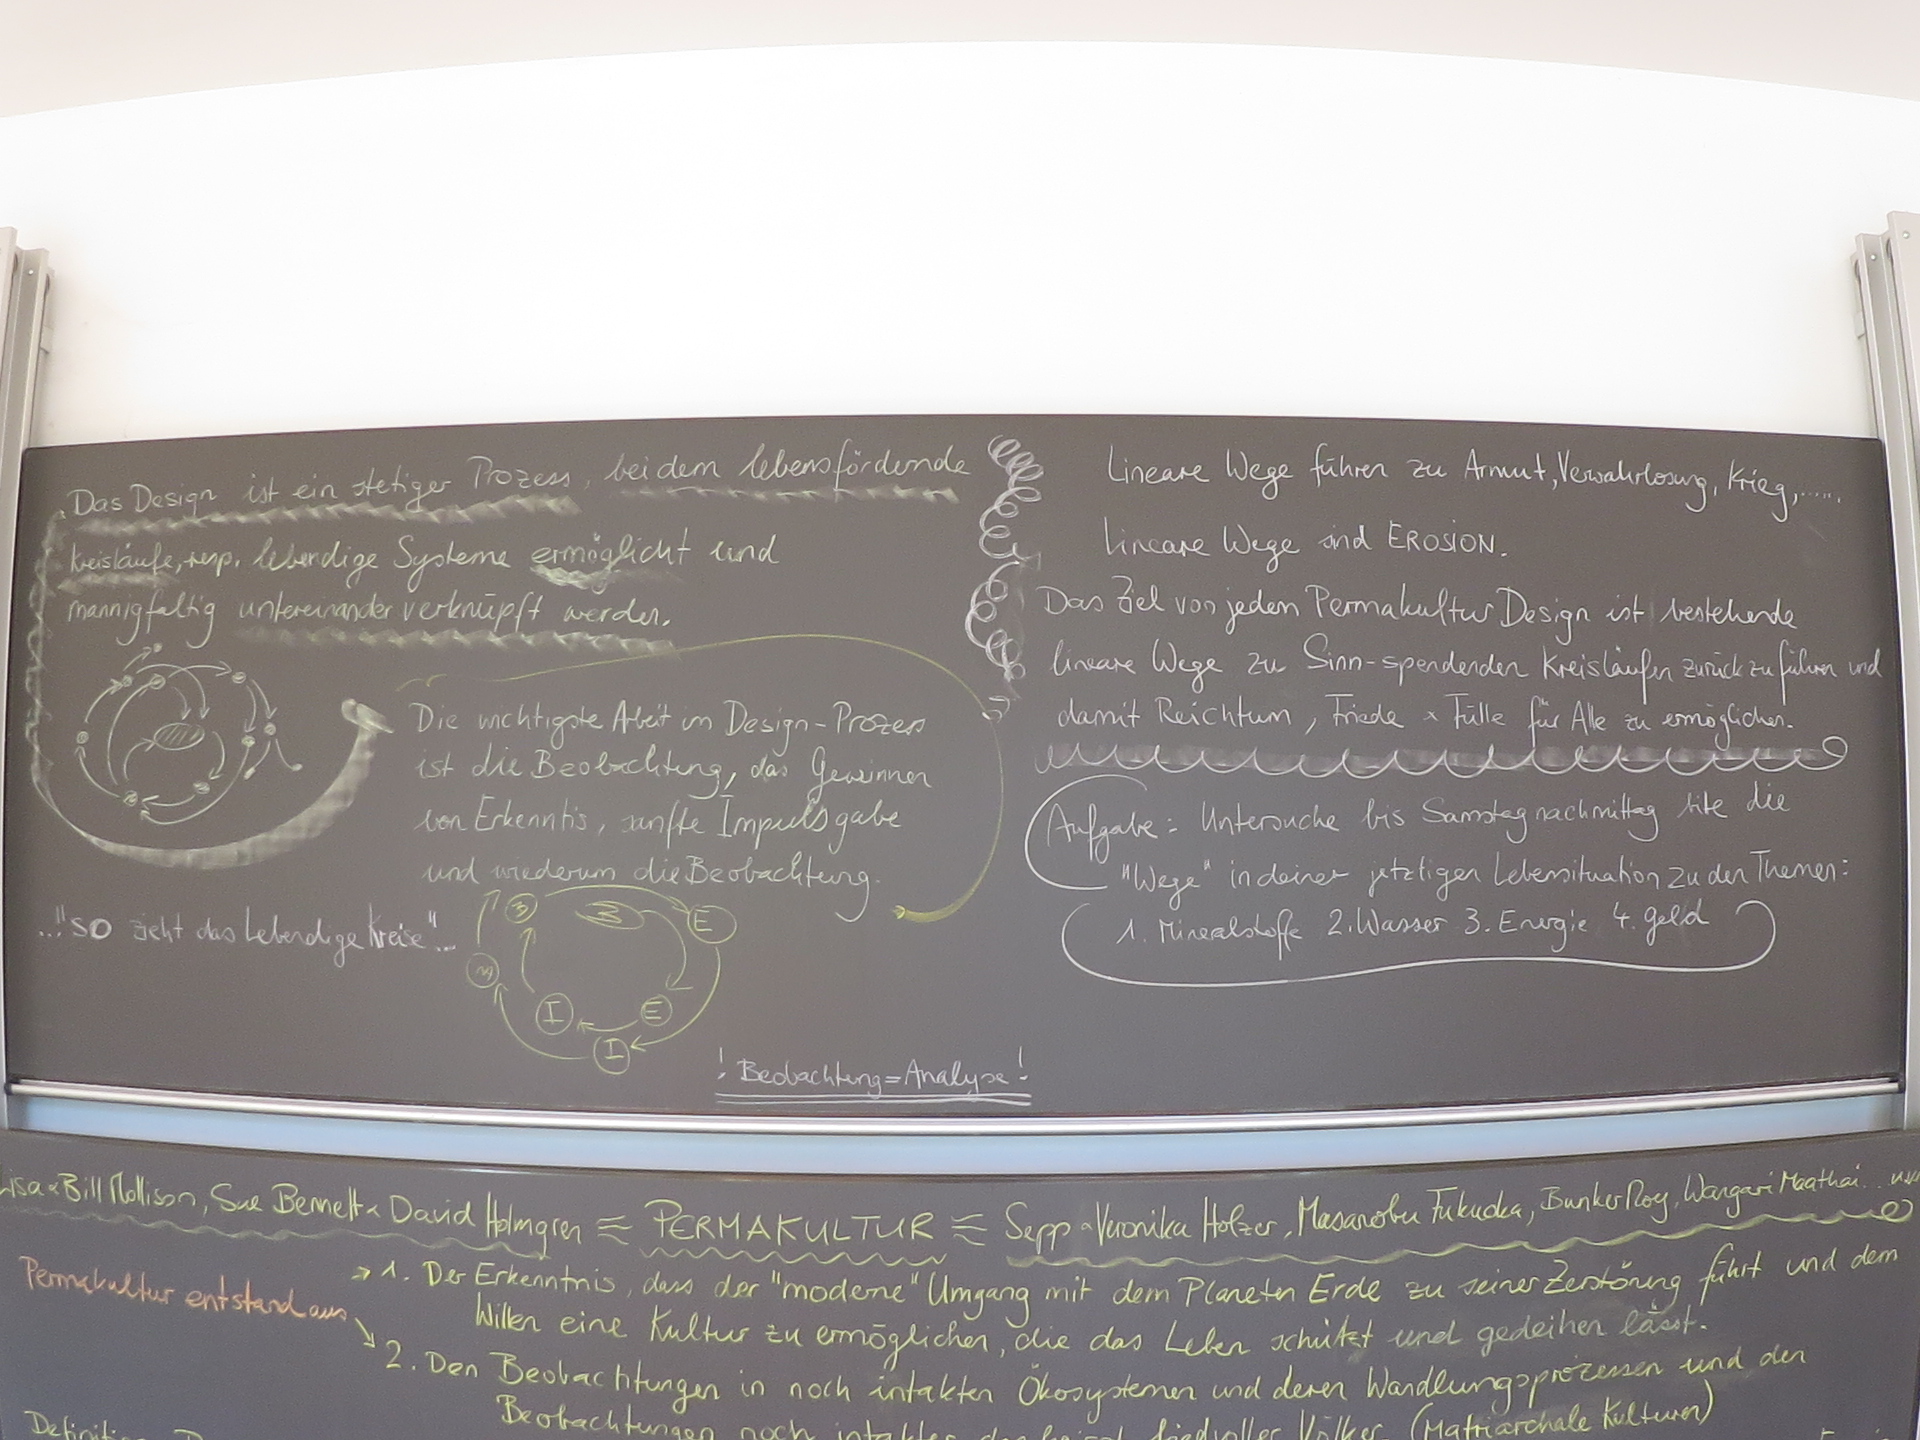 Das Design ist ein stetiger Prozess, bei dem lebensfördernde
Kreisläufe, resp. lebendige Systeme ermöglicht und
mannigfaltig untereinander verknüpft werden.
Die wichtigste Arbeit im Design-Prozess
ist die Beobachtung, das Gewinnen
von Erkenntis, sanfte Impulsgabe
und wiederum die Beobachtung.
..."so zieht das Lebendige Kreise"...
B B E
I E
I
! Beobachtung = Analyse !
Lineare Wege führen zu Armut, Verwahrlosung, Krieg,.....
Lineare Wege sind EROSION.
Das Ziel von jedem Permakultur Design ist bestehende
lineare Wege zu Sinn-spendenden Kreisläufen zurück zu führen und
damit Reichtum, Friede & Fülle für Alle zu ermöglichen.
Aufgabe: Untersuche bis Samstagnachmittag bitte die
"Wege" in deiner jetztigen Lebensituation zu den Themen:
1. Mineralstoffe 2. Wasser 3. Energie 4. Geld
Lisa & Bill Mollison, Sue Bennett & David Holmgren ≈ PERMAKULTUR ≈ Sepp & Veronika Holzer, Masanobu Fukuoka, Bunker Roy, Wangari Maathai...
Permakultur entstand aus
→ 1. Der Erkenntnis, dass der "moderne" Umgang mit dem Planeten Erde zu seiner Zerstörung führt und dem
Willen eine Kultur zu ermöglichen, die das Leben schützt und gedeihen lässt.
2. Den Beobachtungen in noch intakten Ökosystemen und deren Wandlungsprozessen und den
Beobachtungen noch intakter, das heisst friedvoller Völker (Matriarchale Kulturen)